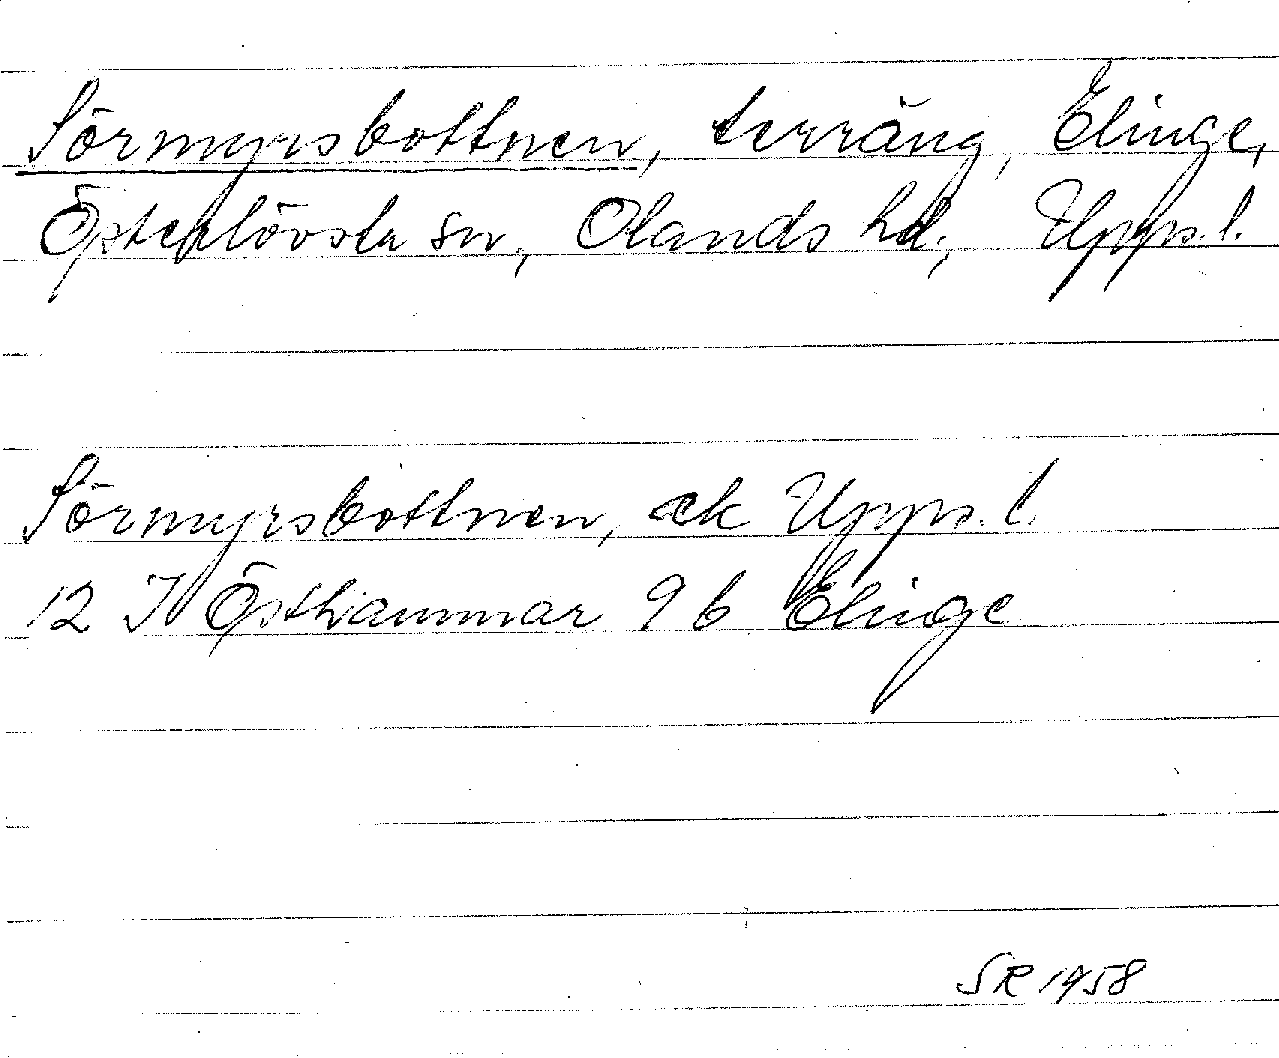 Sörmyrsbottnen, terräng, Elinge,
Österlövsta sn, Olands hd, Upps.l.
Sörmyrsbottnen, ek Upps.l.
12 I Östhammar 9 b Elinge
SR 1958